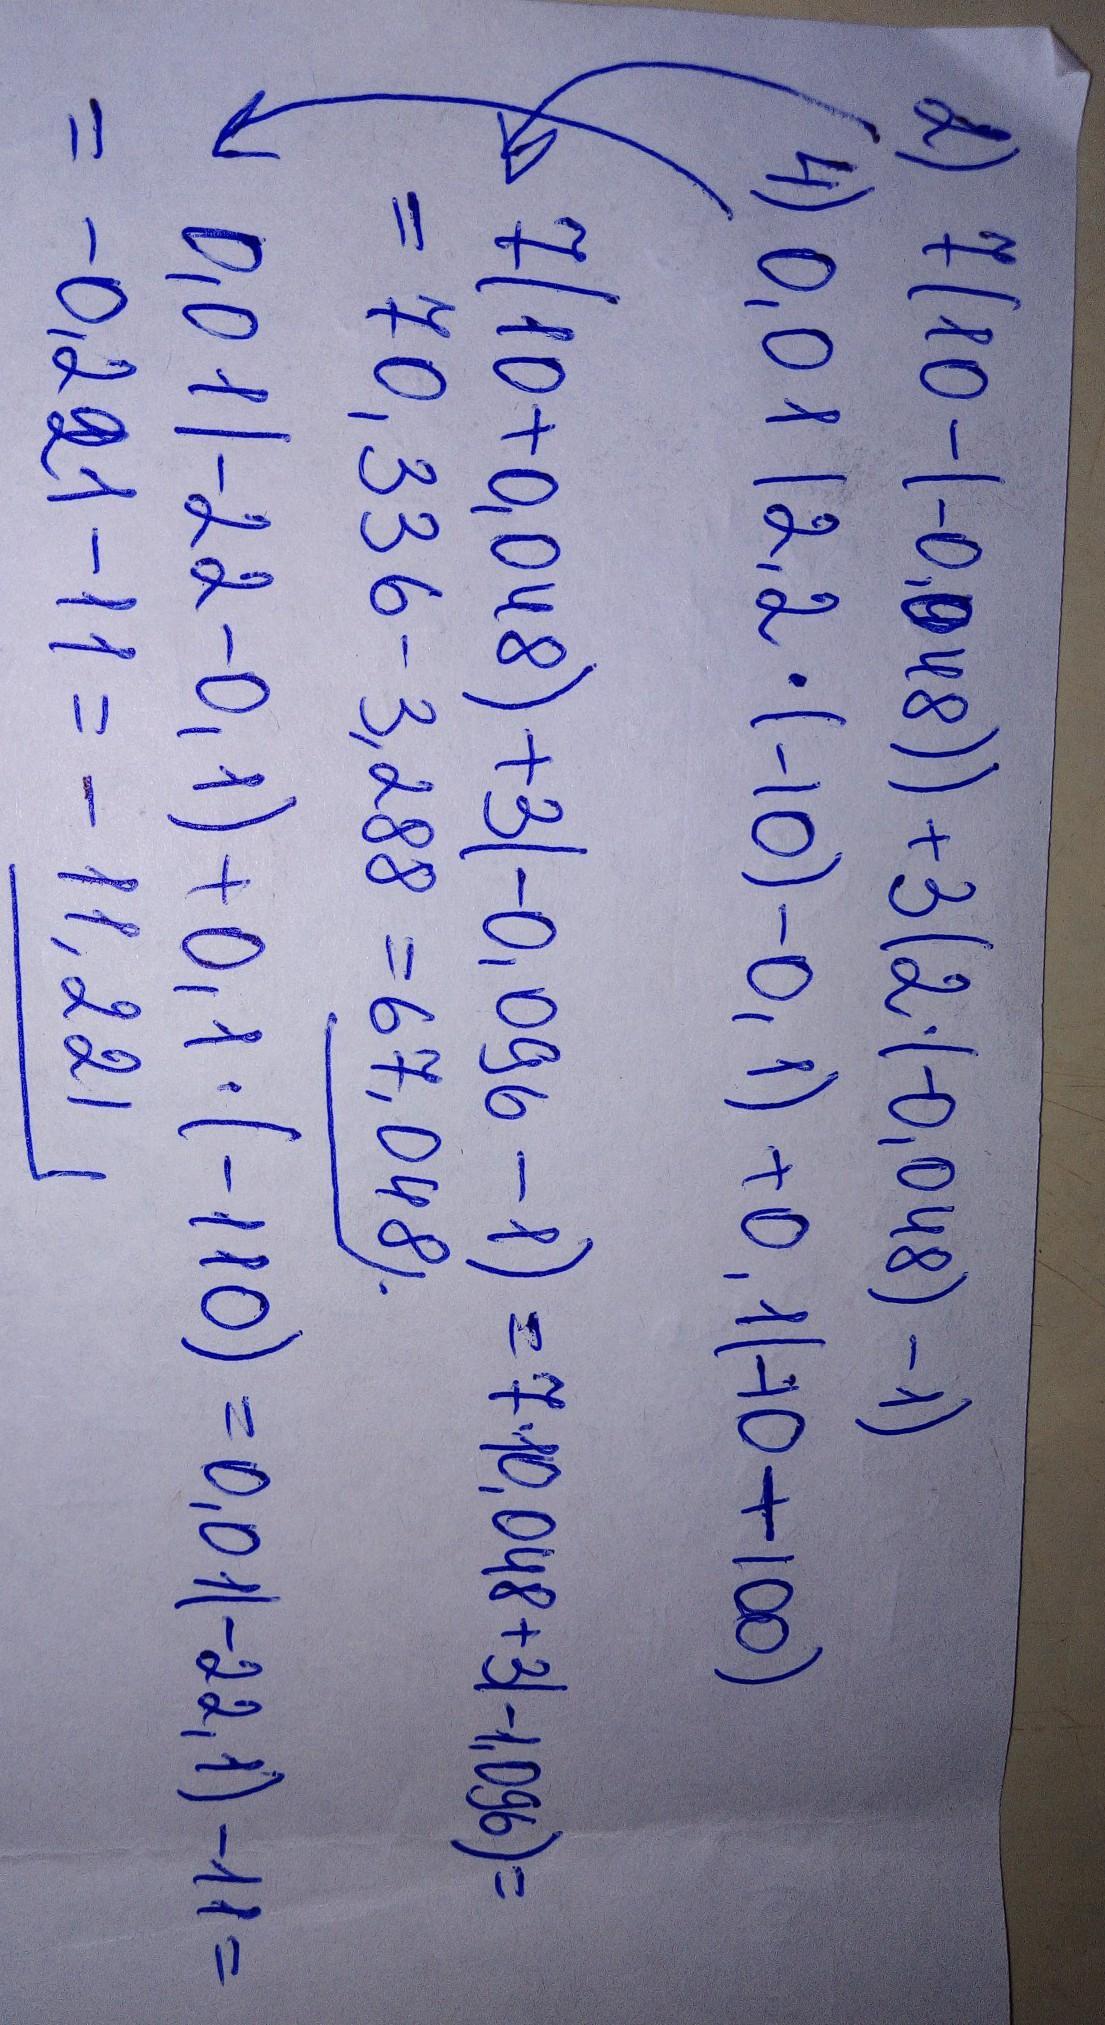 2) 7(10-(-0,048))+3(2·(-0,048)-1)
4) 0,01(2,2·(-10)-0,1)+0,1(-10+100)
7(10+0,048)+3(-0,096-1)=7·10,048+3(-1,096)=
=70,336-3,288=67,048).
0,01(-22-0,1)+0,1·(-110)=0,01(-22,1)-11=
=-0,221-11=-11,221